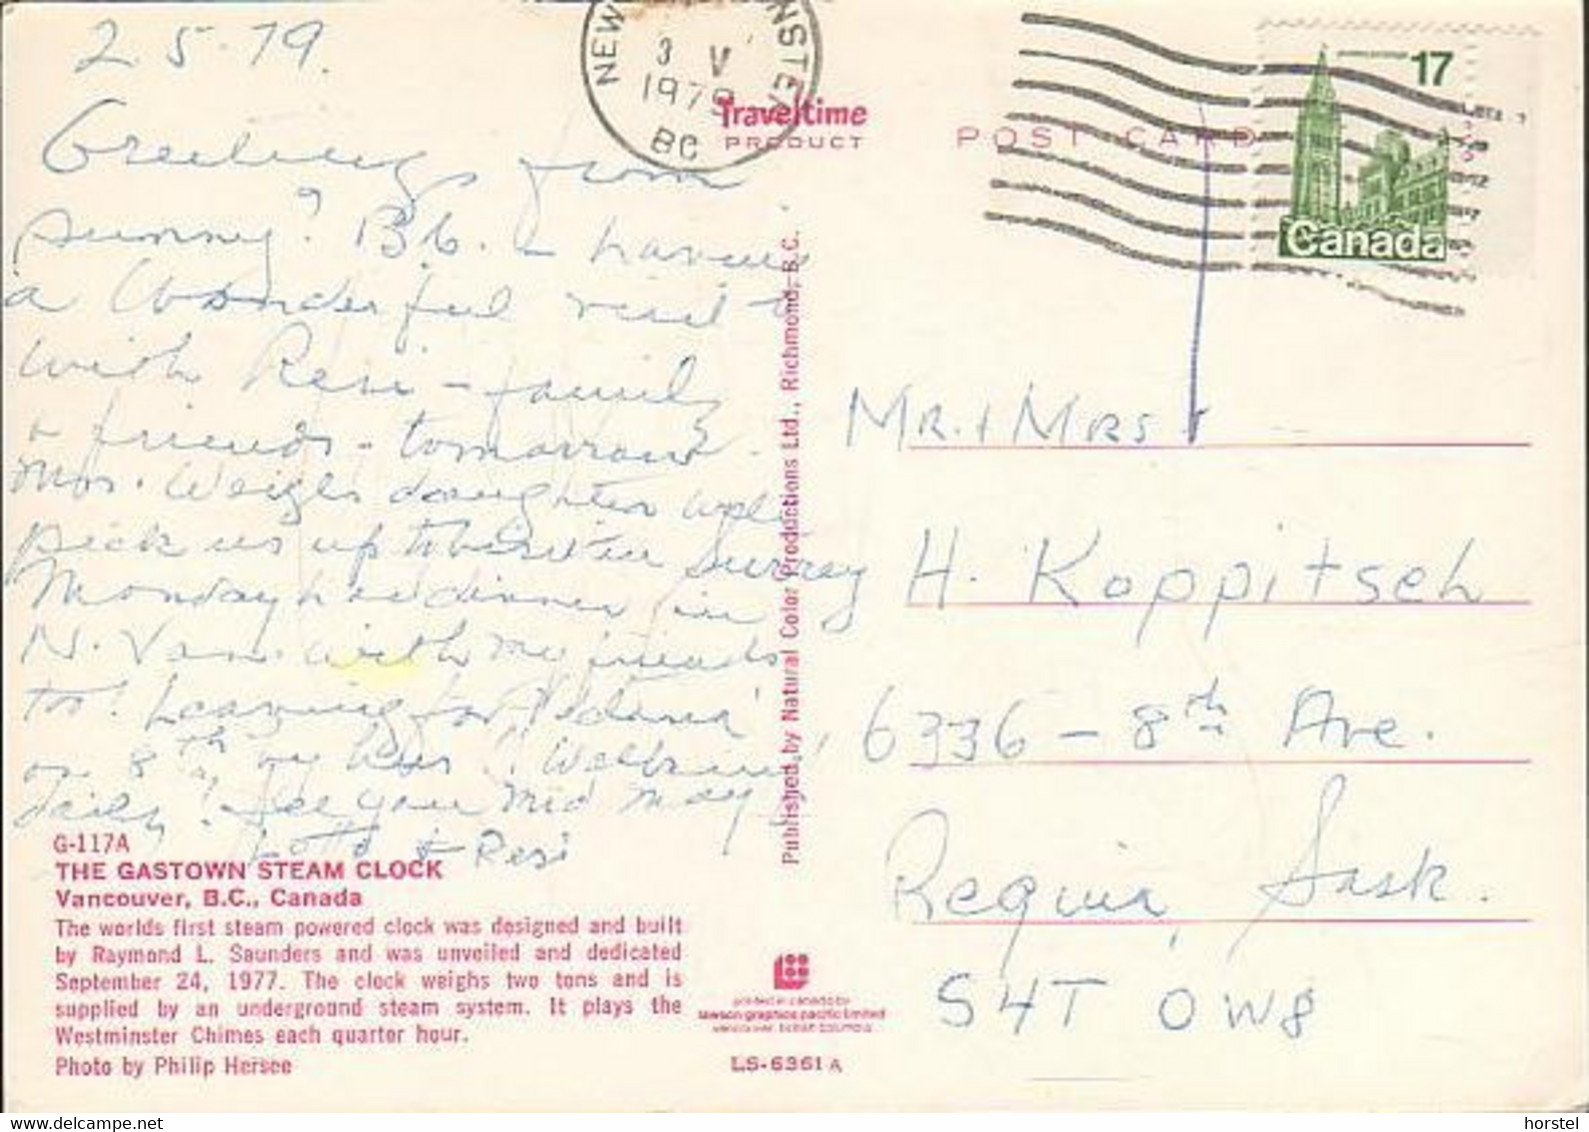 2.5.79.
Greetings from
sunny? B.C. - having
a Wonderful visit
with Resi - family
& friends - tomorrow
Mrs. Weigls daughter will
pick us up to visit in Surrey
Monday had dinner in
N. Van. with my friends
to! Leaving for
on 8th by bus
Daily? See you mid May
Lotte & Resi
G-117A
THE GASTOWN STEAM CLOCK
Vancouver, B.C., Canada
The worlds first steam powered clock was designed and built
by Raymond L. Saunders and was unveiled and dedicated
September 24, 1977. The clock weighs two tons and is
supplied by an underground steam system. It plays the
Westminster Chimes each quarter hour.
Photo by Philip Hersee
NEW NSTER
3 V
1979
BC
Traveltime
PRODUCT
POST CARD
17
Canada
Published by Natural Color Productions Ltd., Richmond, B.C.
Mr. + Mrs
H. Koppitsch
6336 - 8th Ave.
Regina, Sask.
S4T 0W8
printed in canada by
lawson graphics pacific limited
vancouver, british columbia
LS-6361 A
© https://www.delcampe.net
horstel